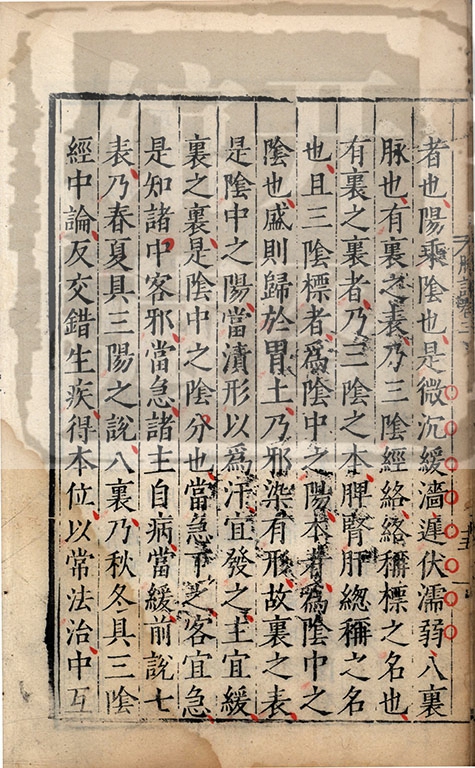 者也陽乘陰也是微沉緩濇遲伏濡弱八裏
脉也有裏之表乃三陰經絡絡稱標之名也
有裏之裏者乃三陰之本脾腎肝緫稱之名
也且三陰標者為陰中之陽本者為陰中之
陰也盛則歸於胃土乃邪染有形故裏之表
是陰中之陽當漬形以為汗宜發之主宜緩
裏之裏是陰中之陰分也當急下之客宜急
是知諸中客邪當急諸主自病當緩前說七
表乃春夏具三陽之說八裏乃秋冬具三陰
經中論反交錯生疾得本位以常法治中互